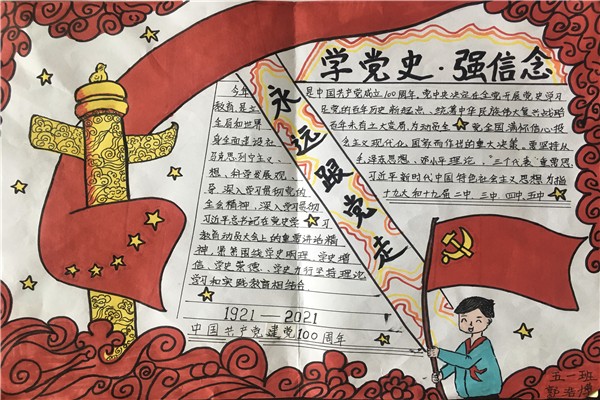 学党史·强信念
永远跟党走
今年是中国共产党成立100周年,党中央决定在全党开展党史学习
教育是立足党的百年历史新起点、统筹中华民族伟大复兴战略
全局和世界百年未有之大变局,为动员全党全国满怀信心投
身全面建设社会主义现代化国家而作出的重大决策,要坚持从
马克思列宁主义、毛泽东思想、邓小平理论、“三个代表”重要思
想、科学发展观、习近平新时代中国特色社会主义思想为指
导、深入学习贯彻党的十九大和十九届二中、三中、四中、五中
全会精神,深入学习贯彻
习近平总书记在党史学习
教育动员大会上的重要讲话精
神,紧紧围绕学史明理、学史增
信、学史崇德、学史力行坚持理论
学习和实践教育相结合
1921—2021
中国共产党建党100周年
五一班